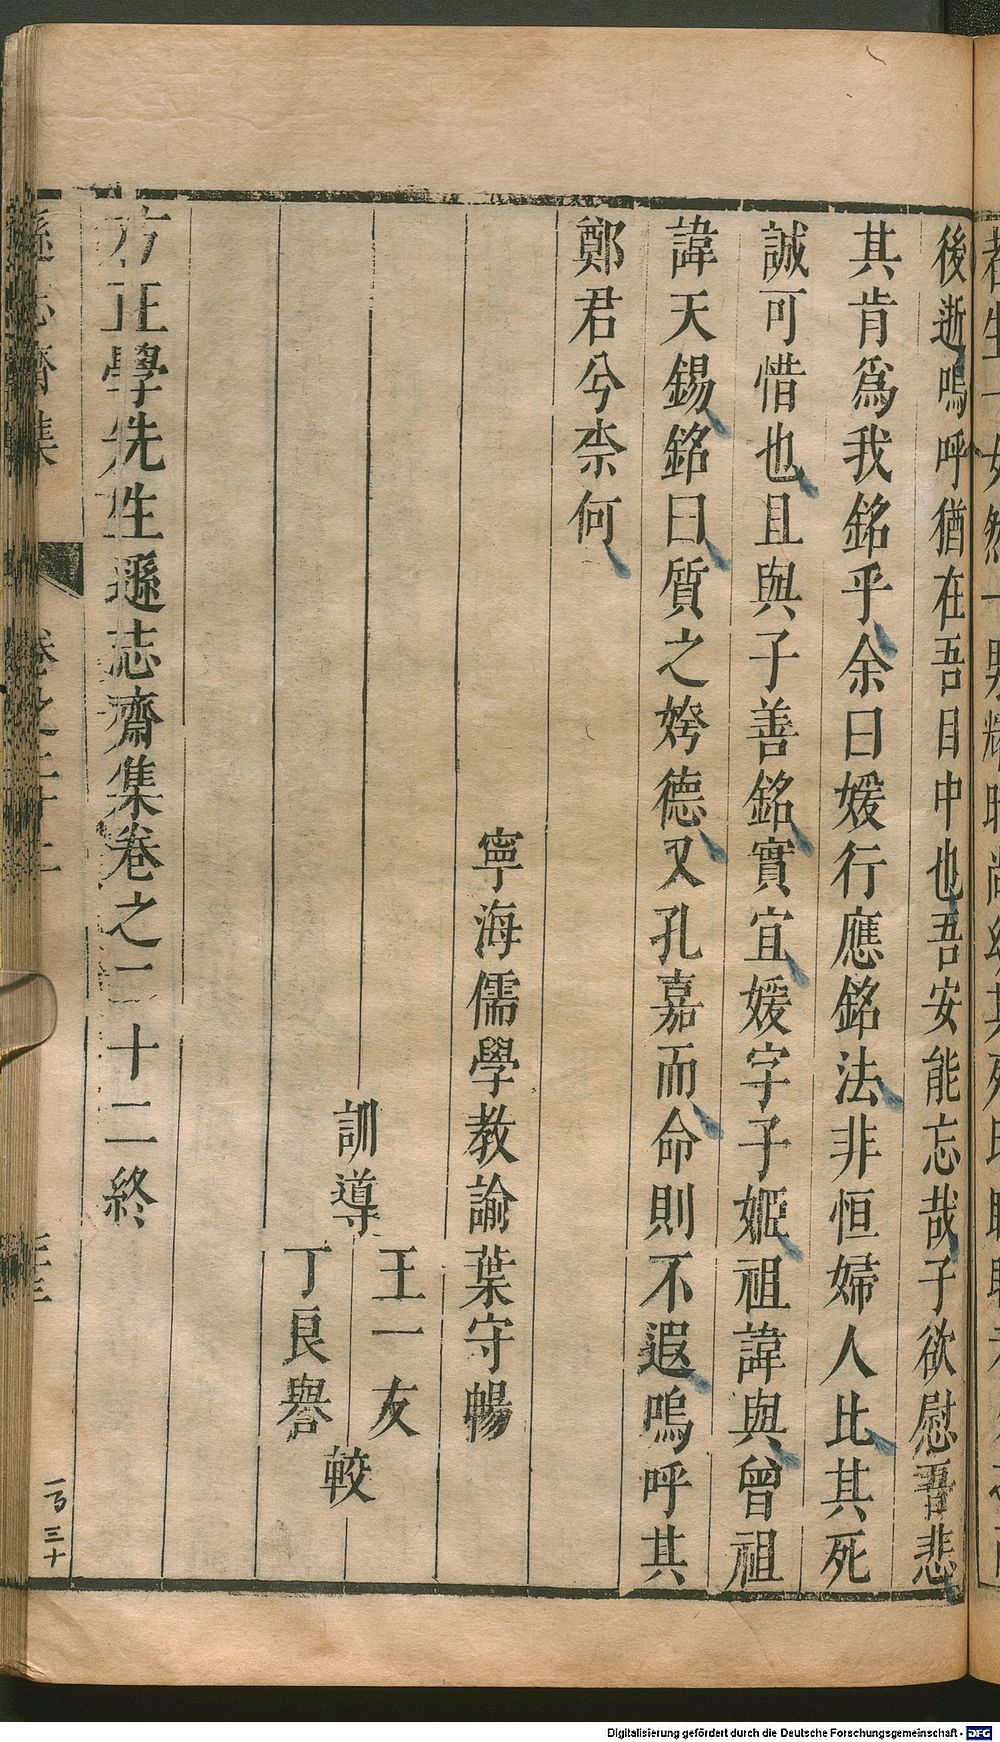 後逝嗚呼猶在吾目中也吾安能忘哉子欲慰吾悲
其肯爲我銘乎余曰媛行應銘法非恒婦人比其死
誠可惜也且與子善銘實宜媛字子姬祖諱與曾祖
諱天錫銘曰質之姱德又孔嘉而命則不遐嗚呼其
鄭君兮柰何
寧海儒學教諭葉守暢
訓導
王一友
丁良譽
較
方正學先生遜志齋集卷之二十二終
遜志齋集
卷之二十二
一百三十
Digitalisierung gefördert durch die Deutsche Forschungsgemeinschaft - DFG